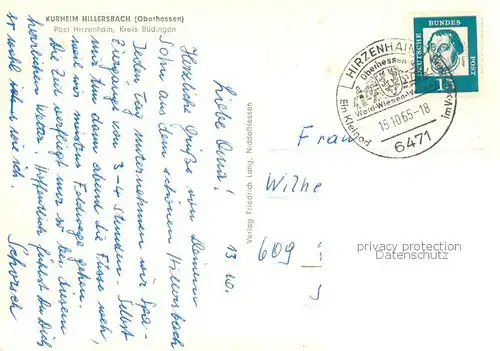 KURHEIM HILLERSBACH (Oberhessen)
Post Hirzenhain, Kreis Büdingen
13.10.
Liebe Omi!
Herzliche Grüße von Deinem
Sohn aus dem schönen Hillersbach
Jeden Tag unternehmen wir Spa-
ziergänge von 3-4 Stunden. Selbst
mir tun dann abend die Füße weh,
weil wir meistens Feldwege gehen.
Die Zeit verfliegt nur so bei diesem
herrlichen Wetter. Hoffentlich fühlst Du Dich
so wohl wie ich.
Schorsch
Verlag Friedrich Lang, Nidda/Hessen
HIRZENHAIN
Oberhessen
Wald-Wiesen-
Ein Kleinod
im Vo
15.10.65-18
6471
DEUTSCHE
BUNDES
POST
Frau
Wilhe
609
privacy protection
Datenschutz